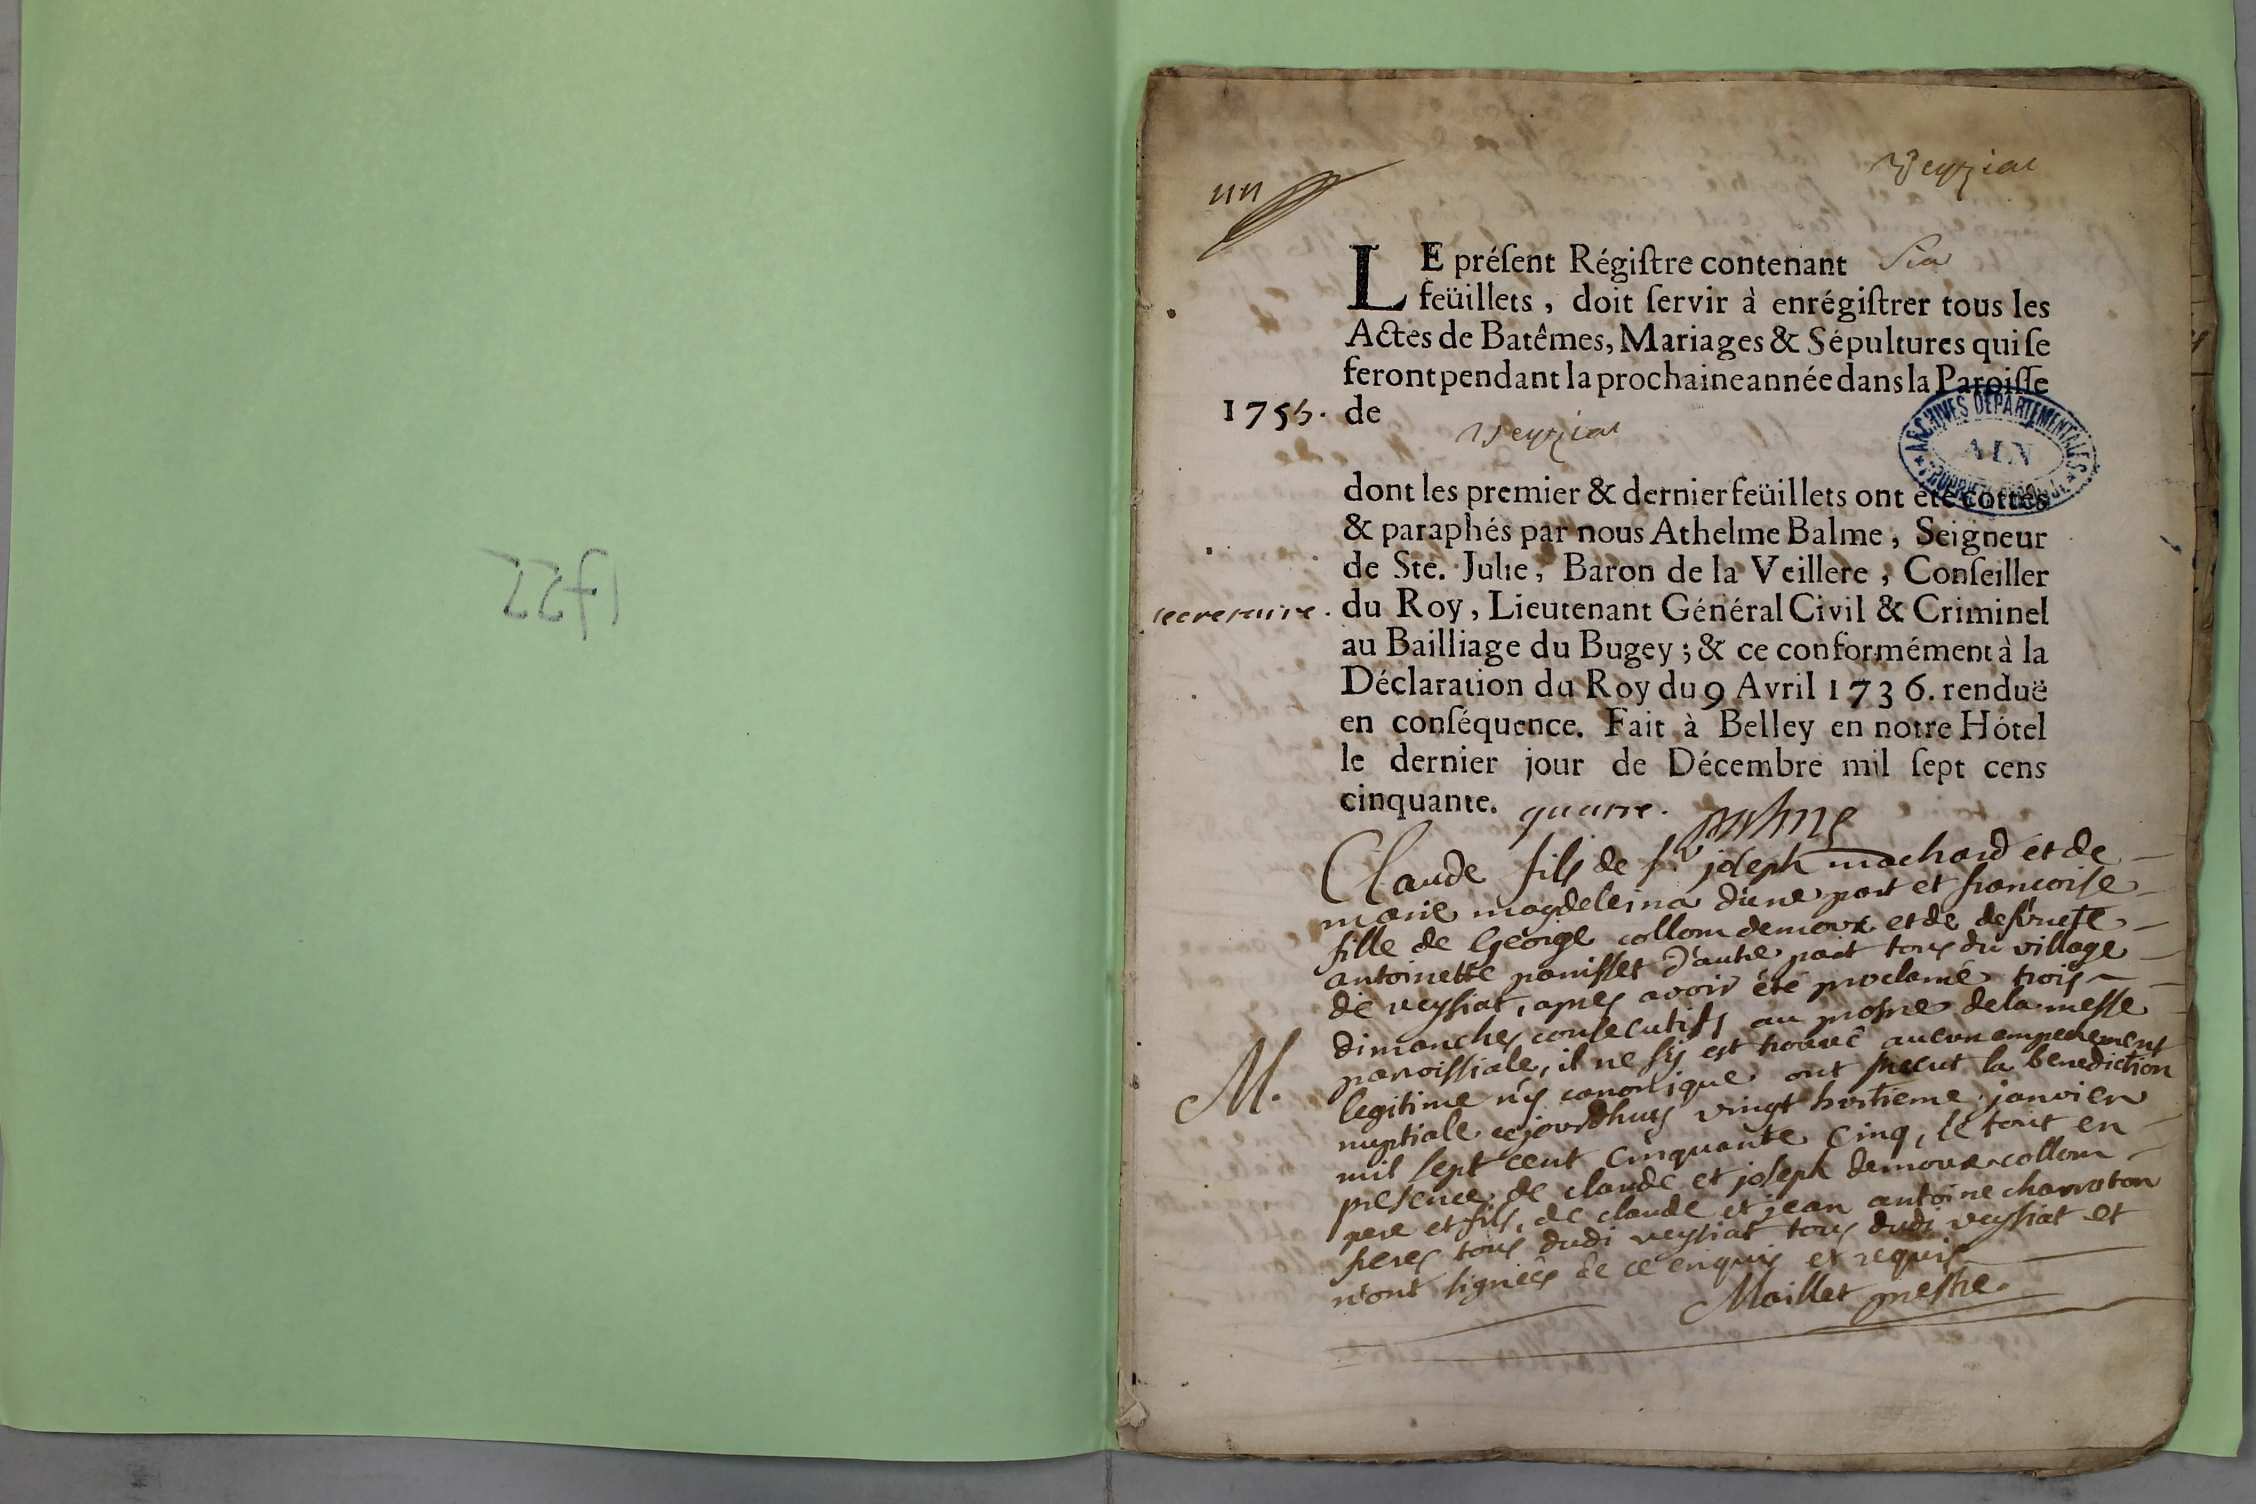 1755
un
Veyziat
LE préſent Régiſtre contenant Six
feüillets, doit ſervir à enrégiſtrer tous les
Actes de Batêmes, Mariages & Sépultures qui ſe
feront pendant la prochaine année dans la Paroiſſe
1755. de
Veyziat
ARCHIVES DÉPARTEMENTALES
AIN
dont les premier & dernier feüillets ont été cottés
& paraphés par nous Athelme Balme, Seigneur
de Ste. Julie, Baron de la Veillere, Conſeiller
secretaire. du Roy, Lieutenant Général Civil & Criminel
au Bailliage du Bugey; & ce conformément à la
Déclaration du Roy du 9 Avril 1736. renduë
en conſéquence. Fait à Belley en notre Hôtel
le dernier jour de Décembre mil ſept cens
cinquante. quatre. Balme
Claude fils de sr joseph machard et de
marie magdeleina d'une part et francoise
fille de George collom demoux et de defunete
antoinette panisset d'autre part tous du village
de veysiat, apres avoir été proclamé trois
dimanches consecutifs au prosne de la messe
paroissiale, il ne s'y est trouvé aucun empechement
M.
legitime n'y canonique ont recut la benediction
nuptiale cejourdhuy vingt huitieme janvier
mil sept cent cinquante cinq, le tout en
presence de claude et joseph demoux collom
pere et fils, de claude et jean antoine charraton
freres tous dudi veysiat tous dudi veysiat et
n'ont signeés de ce enquis et requis
Maillet prestre.